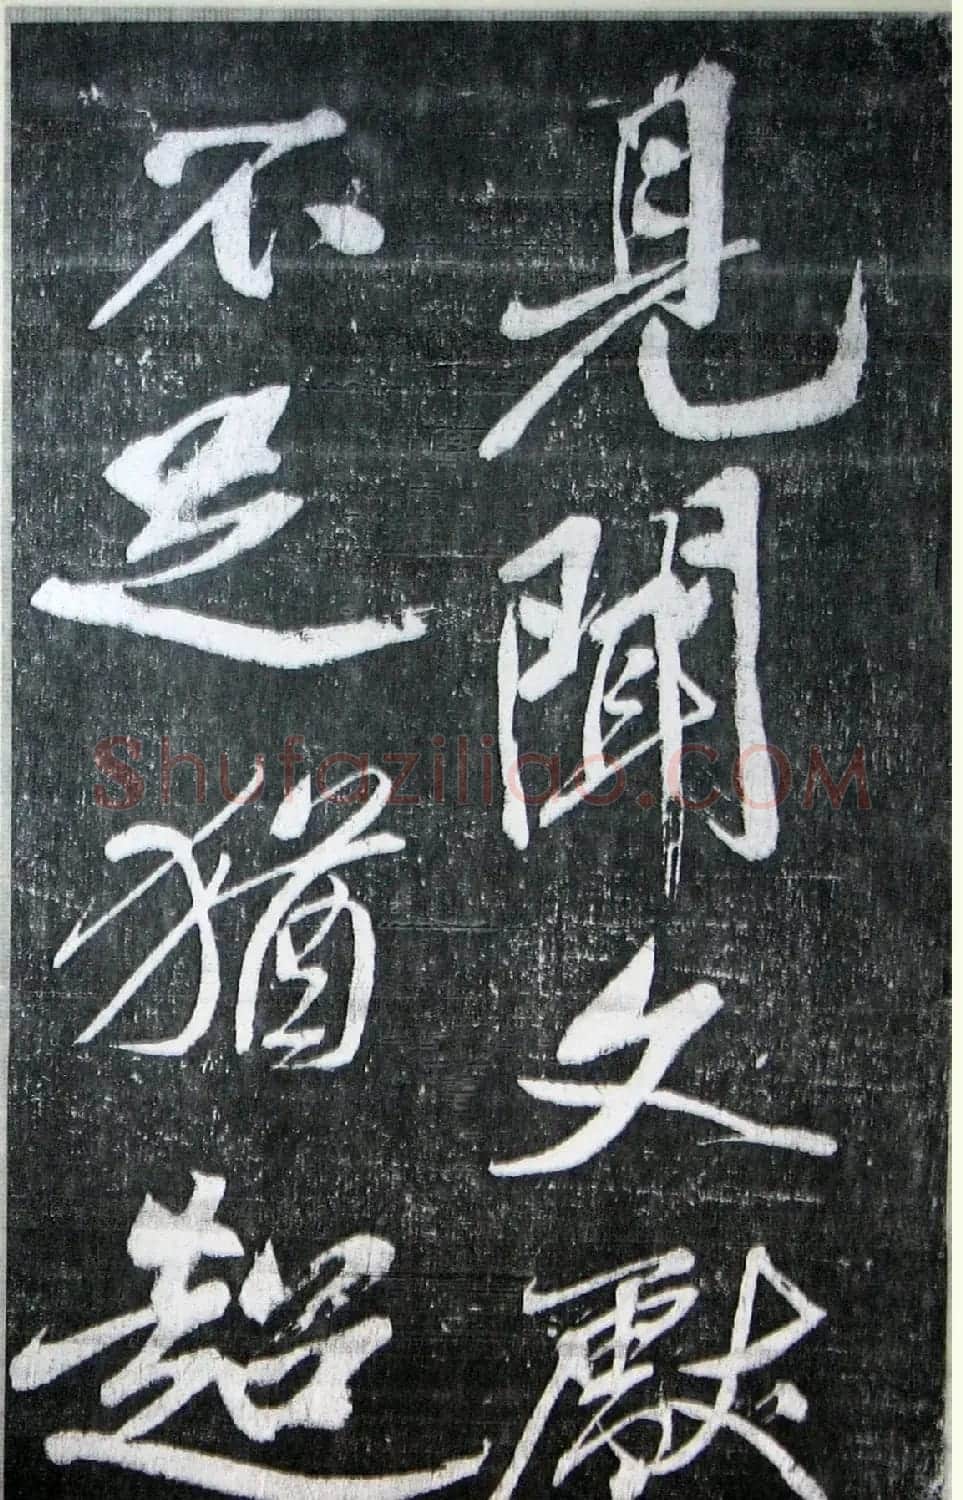 見聞文獻
不足猶超
Shufaziliao.COM